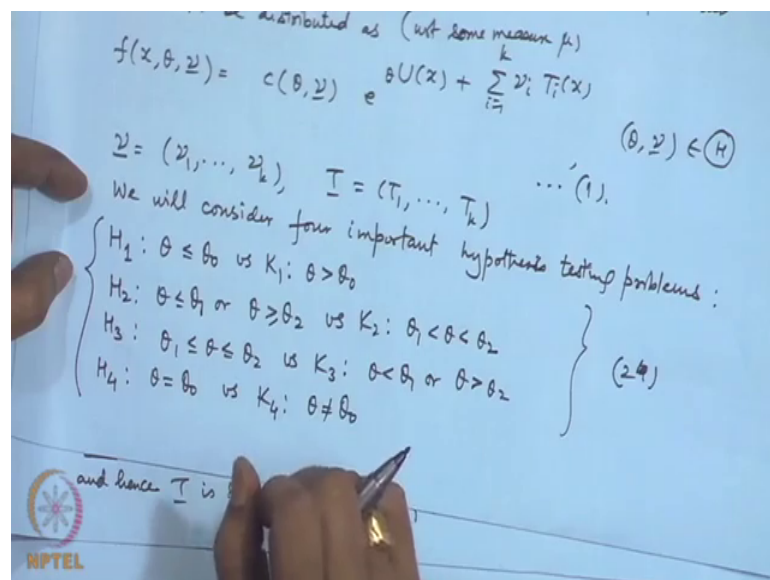 be distributed as (wrt some measure μ)
f(x, θ, ν) = c(θ, ν) e^{θU(x) + Σ_{i=1}^{k} ν_i T_i(x)}
(θ, ν) ∈ Ⓗ
ν = (ν₁, ..., ν_k), T = (T₁, ..., T_k) ... (1).
We will consider four important hypothesis testing problems :
H₁ : θ ≤ θ₀ vs K₁ : θ > θ₀
H₂ : θ ≤ θ₁ or θ ≥ θ₂ vs K₂ : θ₁ < θ < θ₂
H₃ : θ₁ ≤ θ ≤ θ₂ vs K₃ : θ < θ₁ or θ > θ₂
H₄ : θ = θ₀ vs K₄ : θ ≠ θ₀
and hence T is
NPTEL